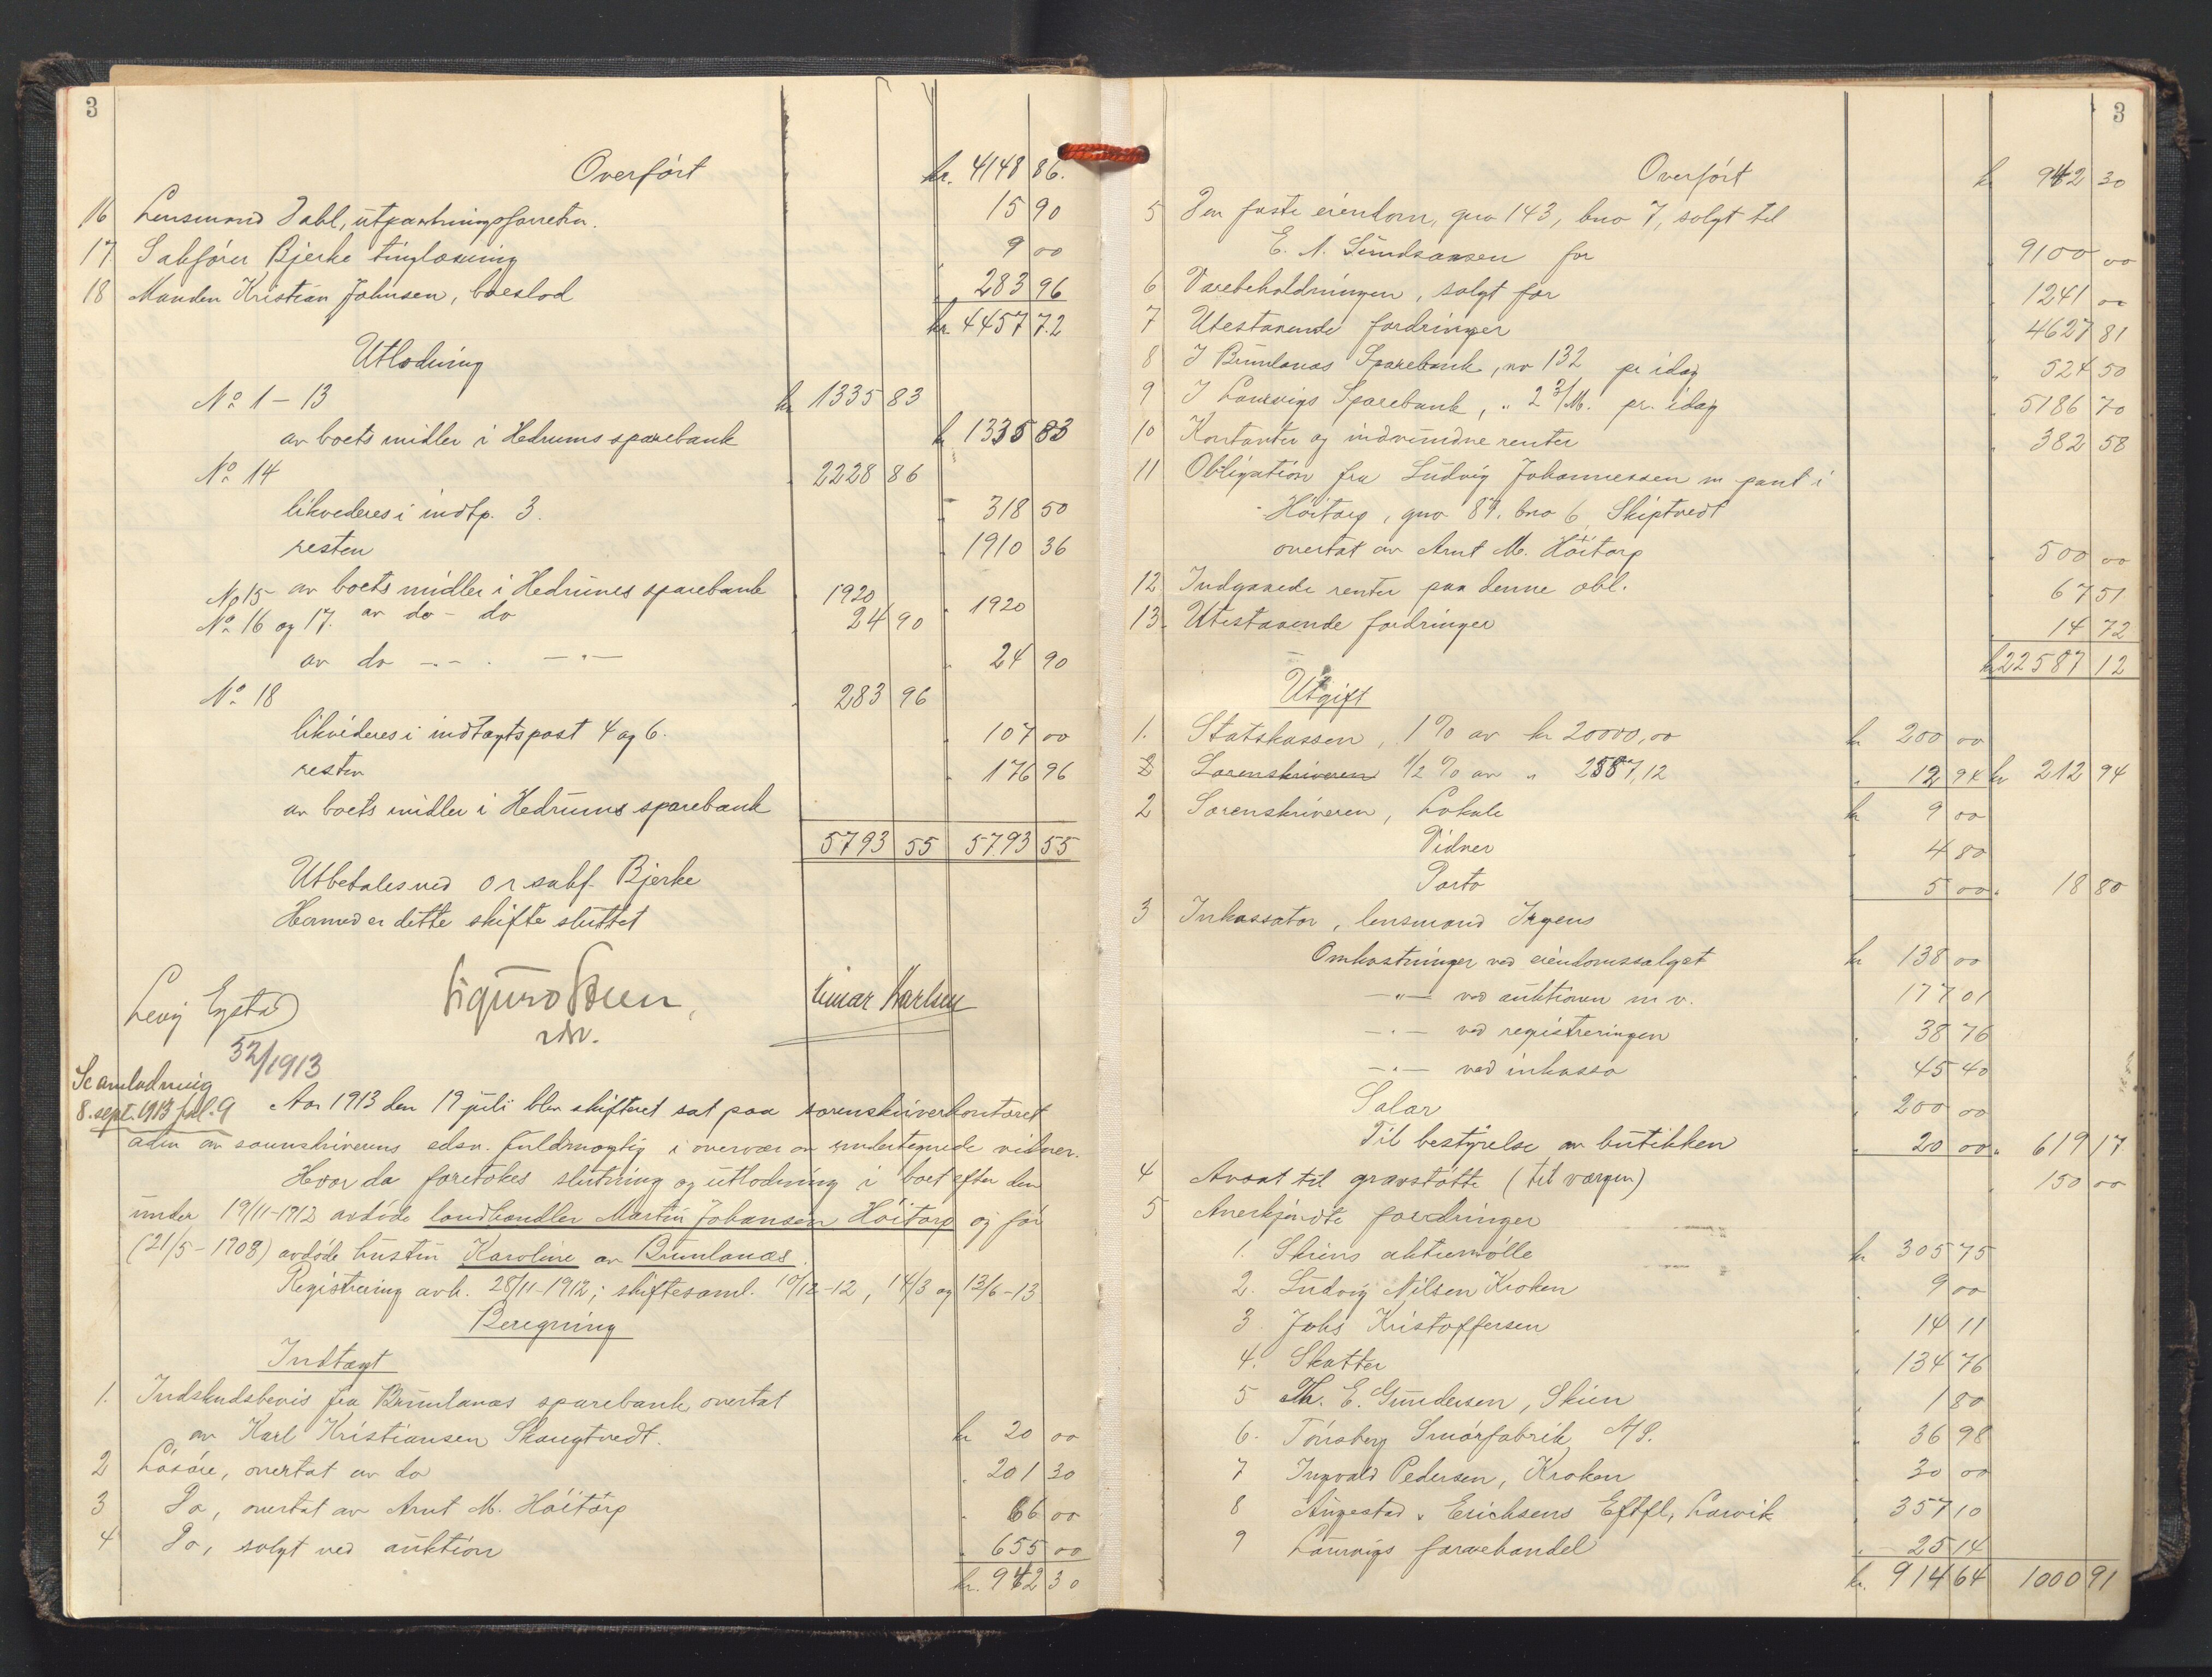 3
Overført kr. 4148 86.
16 Lensmand Dahl, utpantningsforretn. 15 90
17. Sakfører Bjerke tinglæsning 9 00
18 Manden Kristian Johnsen, boeslod 283 96
kr. 4457 72
Utlodning
No 1 – 13 kr 1335 83
av boets midler i Hedrums sparebank kr 1335 83
No 14 2228 86
likvideres i indtp. 3. 318 50
resten 1910 36
av boets midler i Hedrums sparebank
No 15 1920
av do – do 1920
No 16 og 17. 24 90
av do – – . – " – 24 90
No 18 283 96
likvideres i indtægtspost 4 og 6. 107 00
resten 176 96
av boets midler i Hedrums sparebank
5793 55 5793 55
Utbetales ved o r sakf. Bjerke
Hermed er dette skifte sluttet
Levy Eystad Sigurd Steen, Einar Karlsen
52/1913
Se omlodning
8. sept. 1913 fol. 9
Aar 1913 den 19 juli blev skifteret sat paa sorenskriverkontoret
adm av sorenskriverens edsv. fuldmægtig i overvær av undertegnede vidner.
Hvor da foretokes slutning og utlodning i boet efter den
under 19/11-1912 avdøde landhandler Martin Johansen Höitorp og før
(21/5-1908) avdøde hustru Karoline av Brunlanæs.
Registrering avh. 28/11-1912; skiftesaml. 10/12-12, 14/3 og 13/6-13
Beregning
Indtægt
1. Indskudsbevis fra Brunlanæs sparebank overtat
av Karl Kristiansen Skaugtvedt. kr 20 00
2 Løsøre, overtat av do 201 30
3 Do, overtat av Arnt M. Höitorp 66 00
4 Do, solgt ved auktion 655 00
kr. 942 30
3
Overført kr 942 30
5 Den faste eiendom, gno 143, bno 7, solgt til
E. A. Gundersen for 9100 00
6 Varebeholdningen, solgt for 1241 00
7 Utestaaende fordringer 4627 81
8 I Brunlanæs Sparebank, no 132 pr idag 524 50
9 I Laurvigs Sparebank, " 23/M. pr. idag 5186 70
10 Kontanter og indvundne renter 382 58
11 Obligation fra Ludvig Johannessen m pant i
Höitorp, gno 87. bno 6, Skiptvedt
overtat av Arnt M. Höitorp 500 00
12 Indgaaede renter paa denne obl. 67 51
13. Utestaaende fordringer 14 72
kr 22587 12
Utgift
1. Statskassen, 1% av kr 20000,00 kr 200 00
2 Sorenskriveren 1/2 % av " 2587,12 12 94 kr 212 94
2 Sorenskriveren, Lokale kr 9 00
Vidner 4 80
Porto 5 00 18 80
3 Inkassator, lensmand Irgens
Omkostninger ved eiendomssalget kr 138 00
– " – ved auktionen m v. 177 01
– " – ved registreringen 38 76
– " – ved inkasso 45 40
Salær 200 00
Til bestyrelse av butikken 20 00 619 17
4 Avsat til gravstøtte (til værgen) 150 00
5 Anerkjendte fordringer
1. Skiens aktiemølle kr 305 75
2. Ludvig Nilsen Kroken 9 00
3 Johs Kristoffersen 14 11
4. Skatter 134 76
5 Th. E. Gundersen, Skien 1 80
6. Tönsberg Smörfabrik A/S. 36 98
7 Ingvald Pedersen, Kroken 30 00
8 Augestad & Erichsens Eftfl, Larvik 357 10
9 Laurvigs farvehandel 25 14
kr. 914 64 1000 91